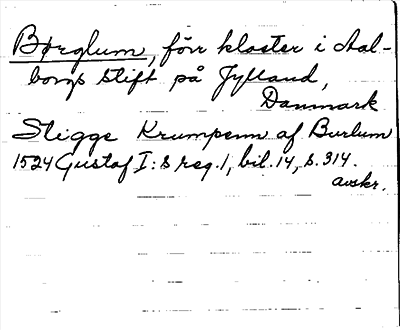 Børglum, förr kloster i Aal-
borgs stift på Jylland,
Danmark
Stigge Krumpenn af Burlum
1524 Gustaf I:s reg. 1, bil. 14, s. 314.
avskr.